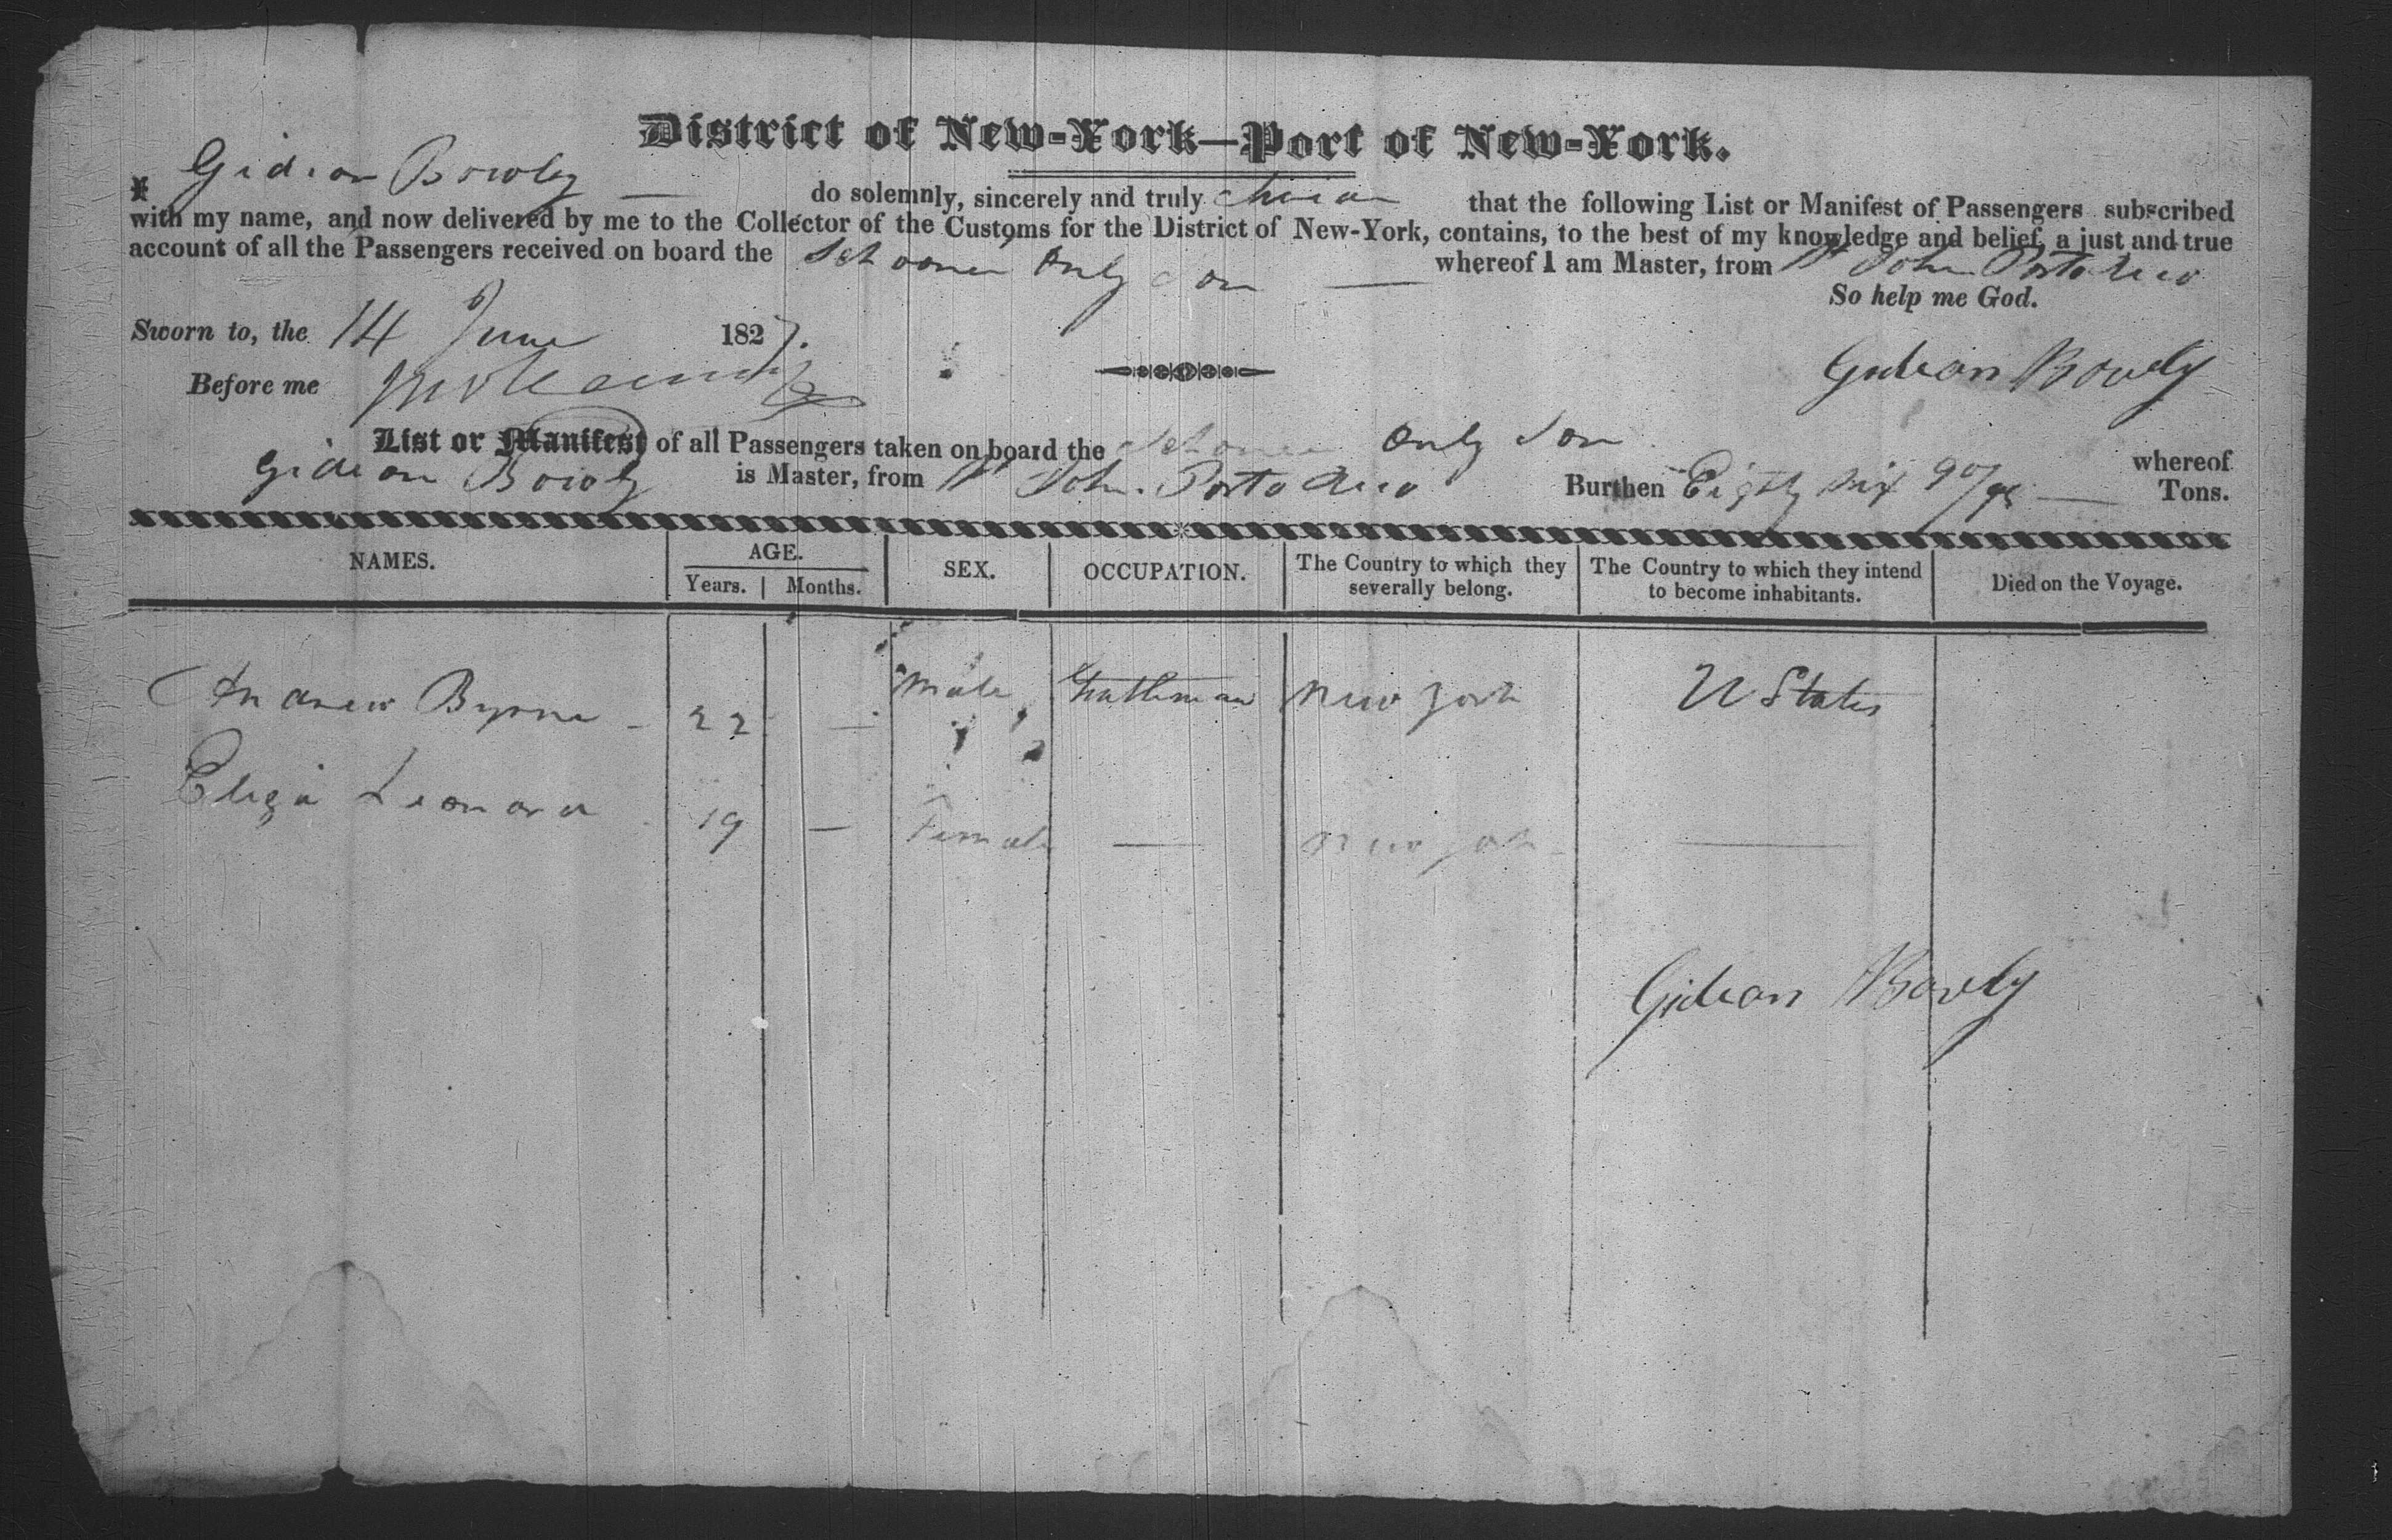 District of New-York—Port of New-York.
I Gideon Bowly — do solemnly, sincerely and truly swear that the following List or Manifest of Passengers subscribed
with my name, and now delivered by me to the Collector of the Customs for the District of New-York, contains, to the best of my knowledge and belief, a just and true
account of all the Passengers received on board the Schooner Only Son — whereof I am Master, from St John Porto Rico
So help me God.
Sworn to, the 14 June 1827.
Gideon Bowly
Before me
List or Manifest of all Passengers taken on board the Schooner Only Son whereof
Gideon Bowly is Master, from St John Porto Rico Burthen Eighty six 90/95 — Tons.
NAMES. AGE. Years. Months. SEX. OCCUPATION. The Country to which they severally belong. The Country to which they intend to become inhabitants. Died on the Voyage.
Andrew Byrne - 22 — Male Gentleman New York U States
Eliza Leonard 19 — Female — New York —
Gideon Bowly